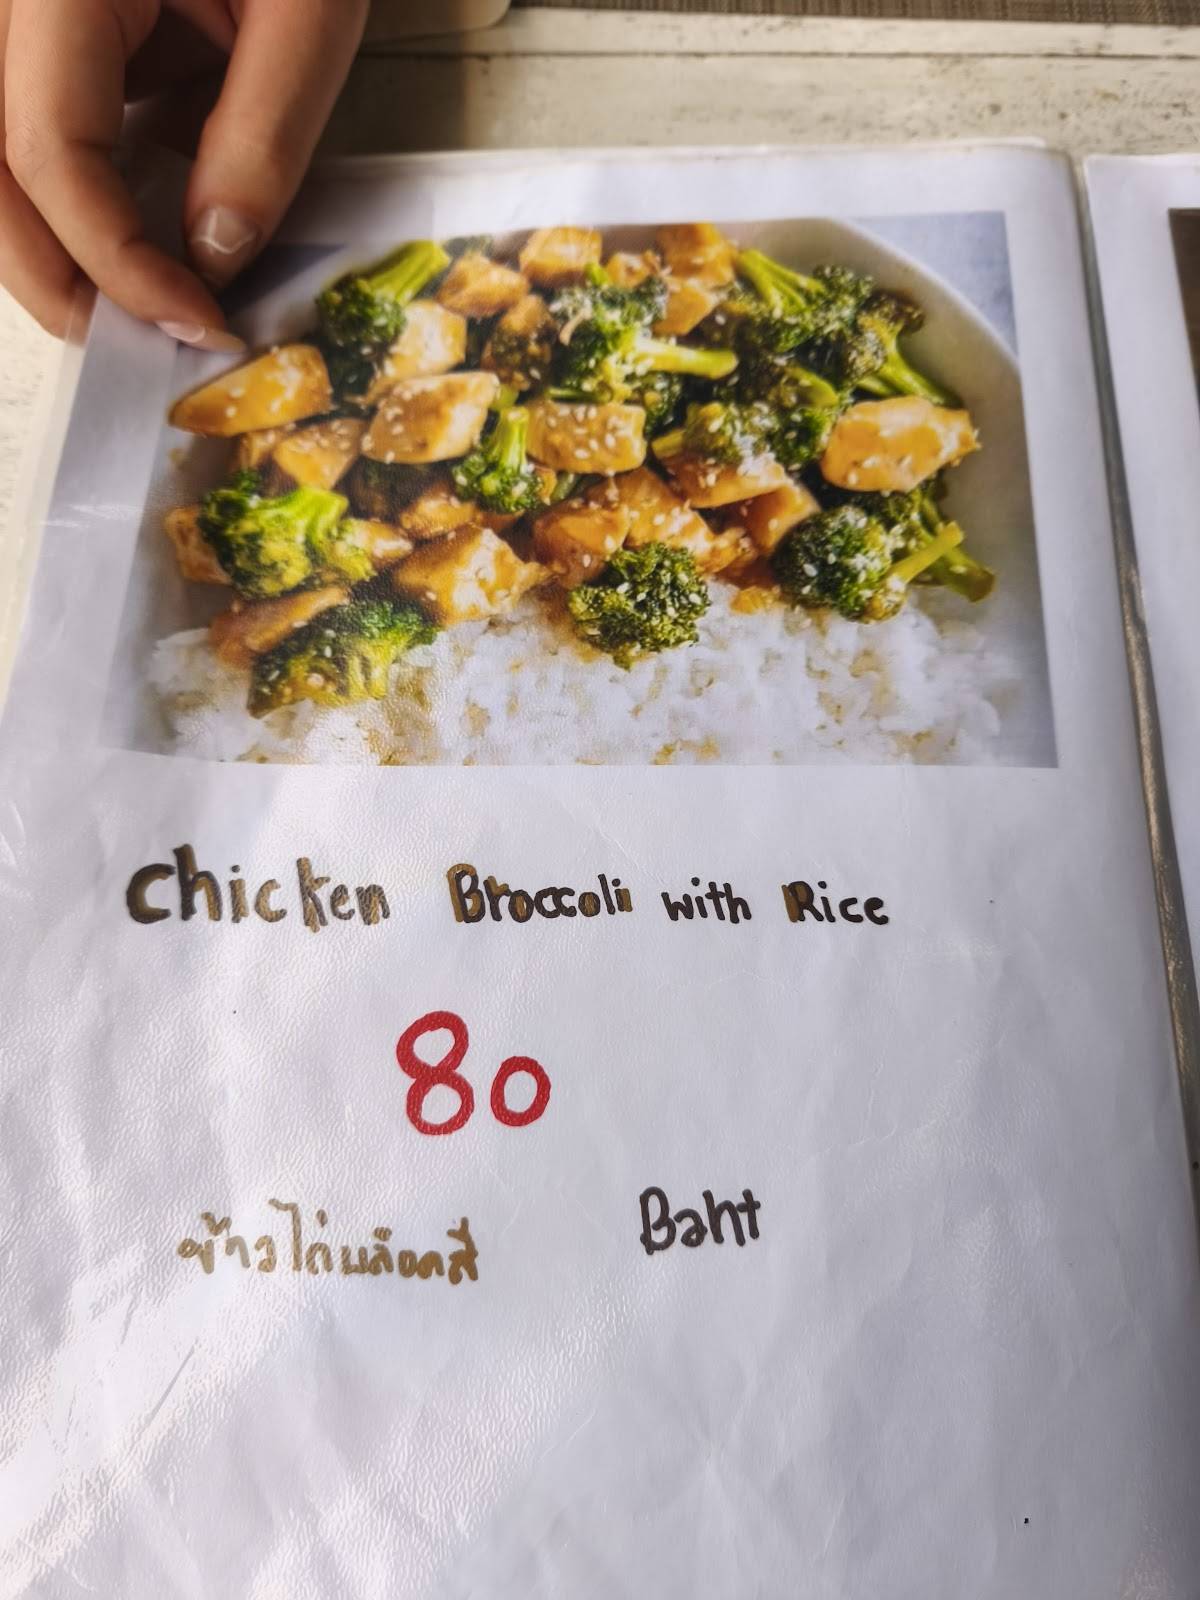 Chicken Broccoli with Rice
80
ข้าวไก่บล็อคสี Baht